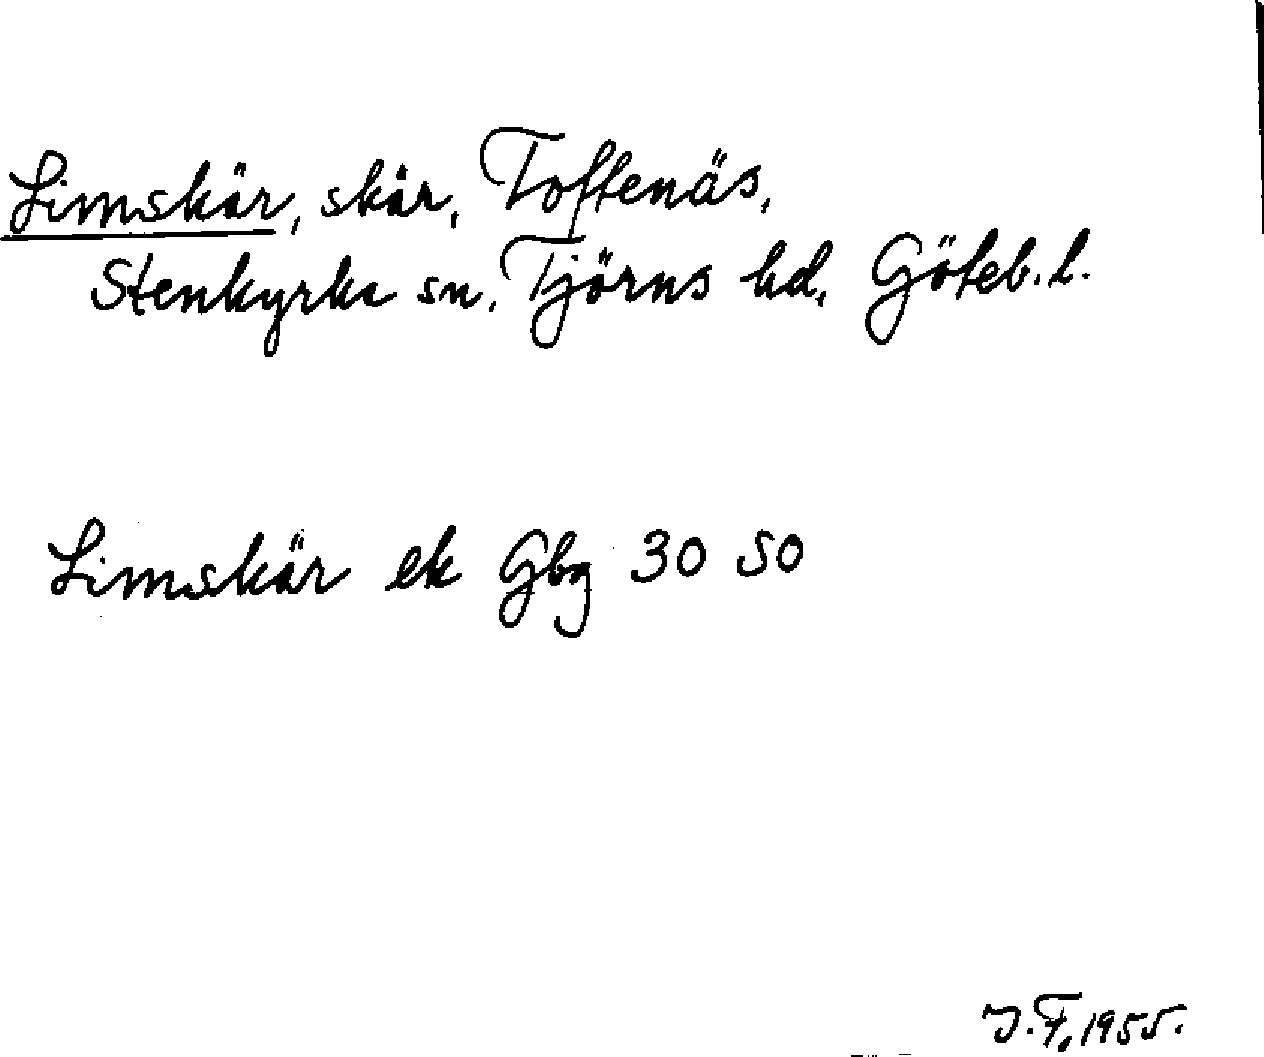 Limskär, skär, Toftenäs,
Stenkyrka sn, Tjörns hd, Göteb. l.
Limskär ek Gbg 30 SO
J. F. 1955.